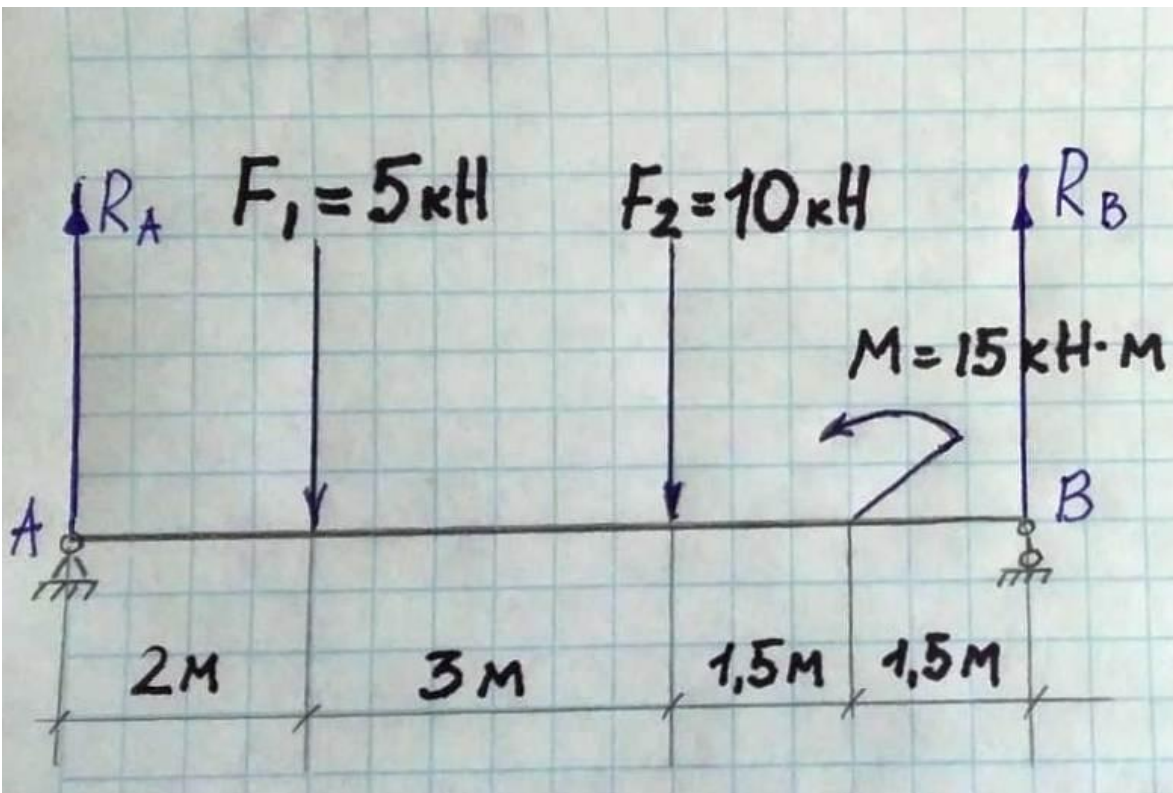 R_A F₁ = 5кН F₂ = 10кН R_B
M = 15 кН·м
A B
2м 3м 1,5м 1,5м